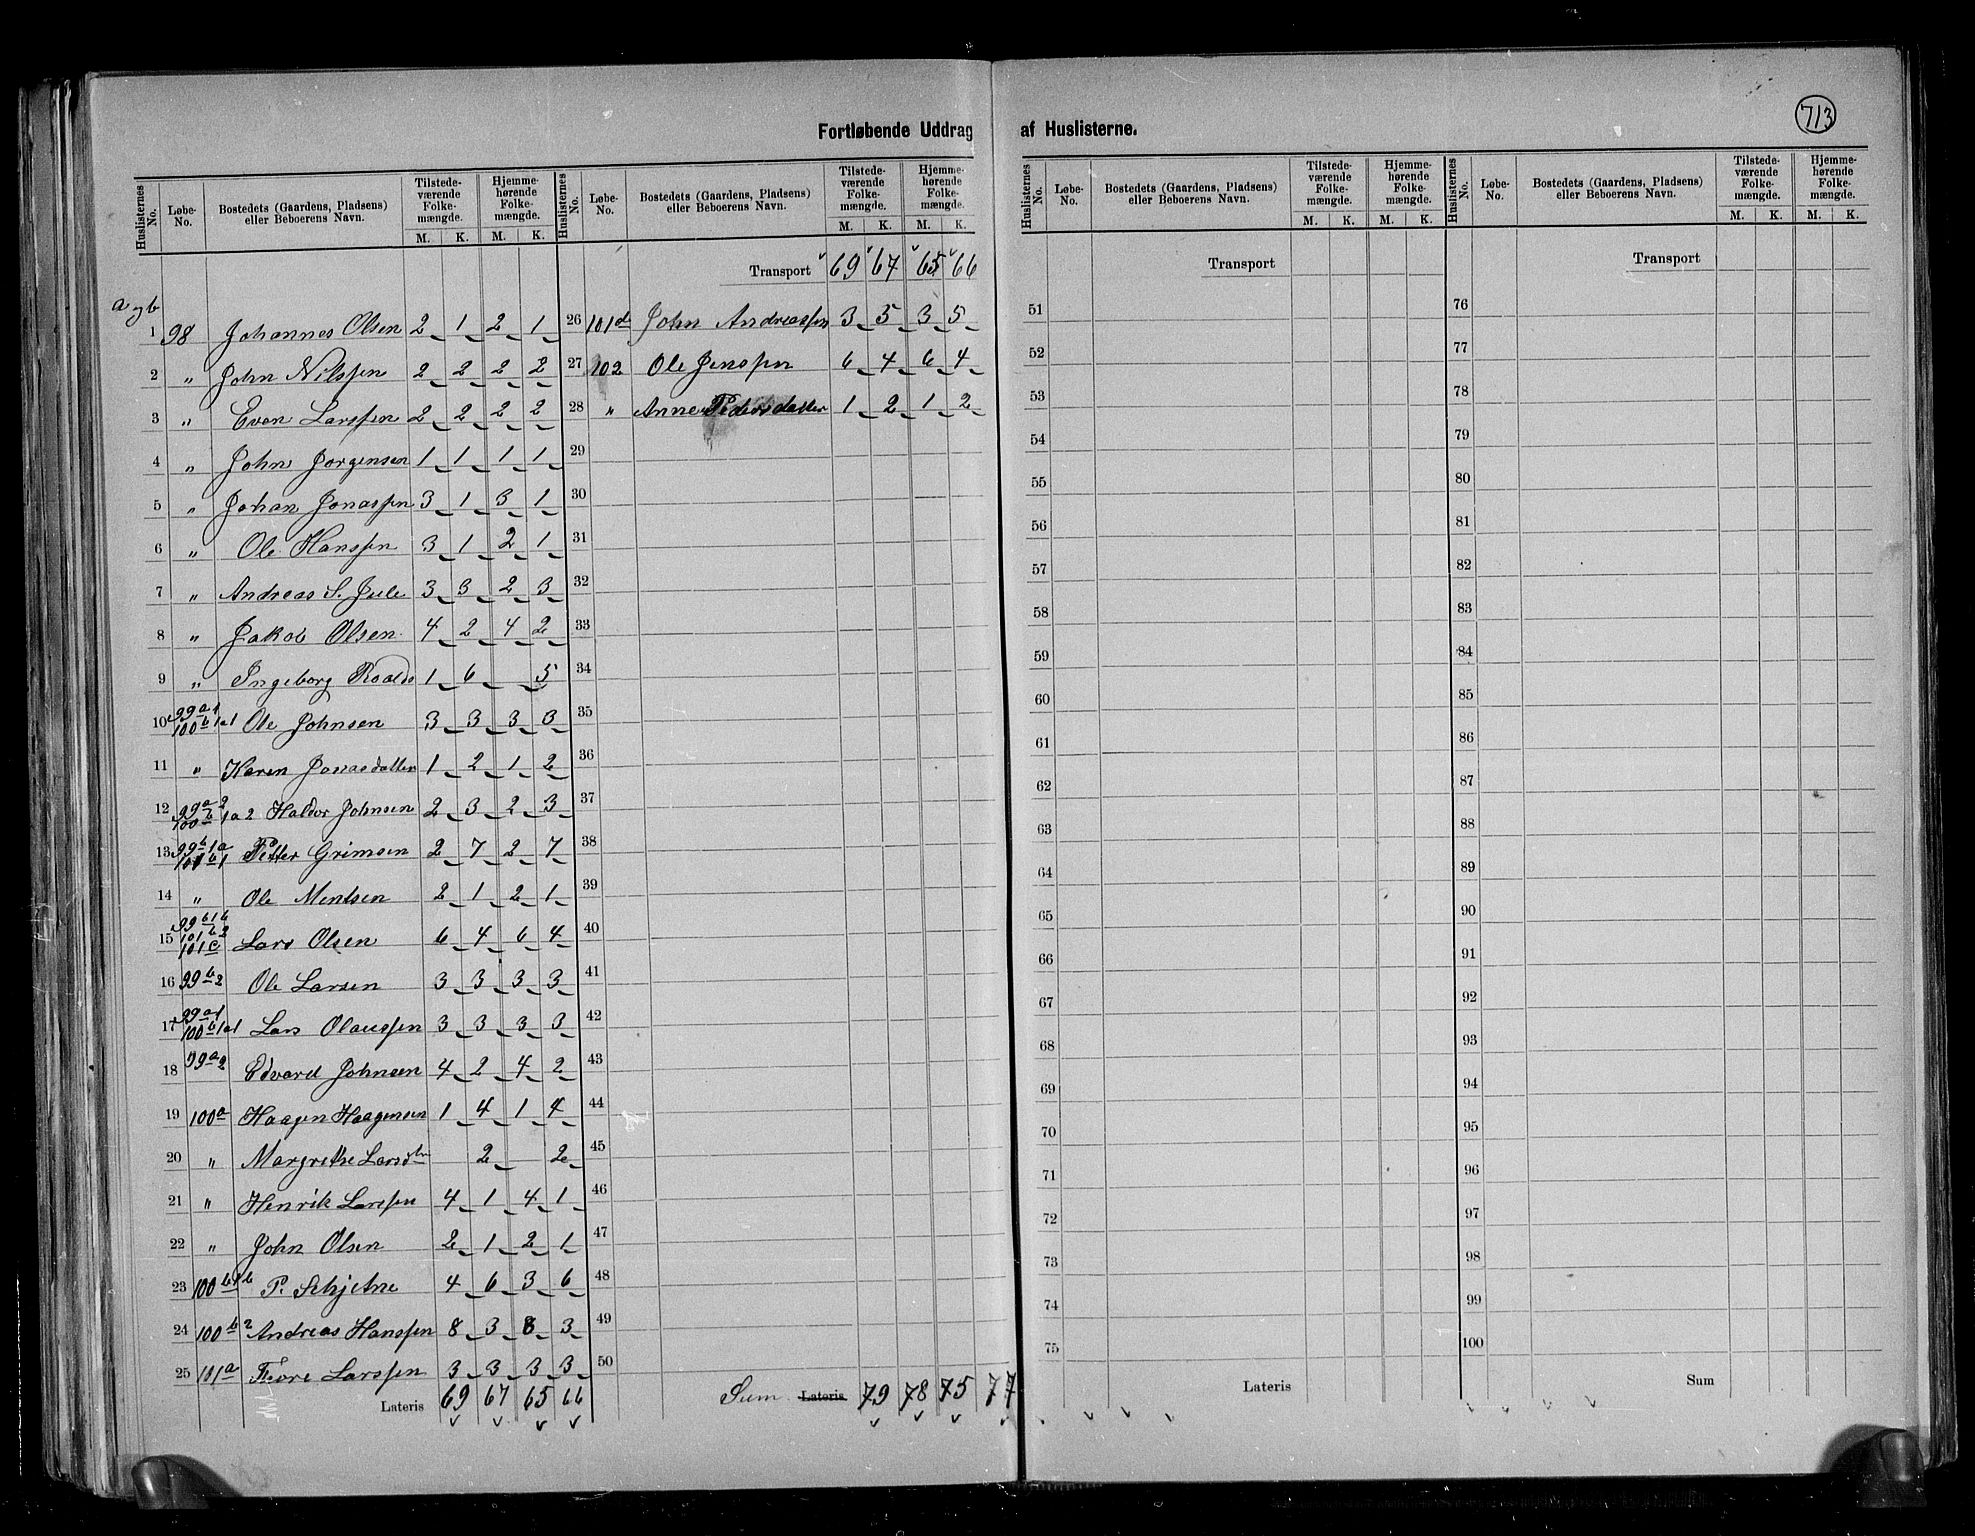 713
Fortløbende Uddrag af Huslisterne.
Huslisternes No. Løbe-No. Bostedets (Gaardens, Pladsens) eller Beboerens Navn. Tilstedeværende Folkemængde. M. K. Hjemmehørende Folkemængde. M. K.
a og b
1 98 Johannes Olsen 2 1 2 1
2 " John Nilssen 2 2 2 2
3 " Even Larssen 2 2 2 2
4 " John Jørgensen 1 1 1 1
5 " Johan Jonassen 3 1 3 1
6 " Ole Hanssen 3 1 2 1
7 " Andreas S. Jule 3 3 2 3
8 " Jakob Olsen 4 2 4 2
9 " Ingeborg Roalds 1 6 5
10 99a1 100b1a1 Ole Johnsen 3 3 3 3
11 " Karen Jonasdatter 1 2 1 2
12 99a2 100b1a2 Haldor Johnsen 2 3 2 3
13 99b1a 101b1 Petter Grimsen 2 7 2 7
14 " Ole Mentsen 2 1 2 1
15 99b1b 101b2 101c Lars Olsen 6 4 6 4
16 99b2 Ole Larsen 3 3 3 3
17 99a1 100b1a1 Lars Olaussen 3 3 3 3
18 99a2 Edvard Johnsen 4 2 4 2
19 100a Haagen Haagensen 1 4 1 4
20 " Margrethe Larsdtr 2 2
21 " Henrik Larssen 4 1 4 1
22 " John Olsen 2 1 2 1
23 100b1b P. Schjetne 4 6 3 6
24 100b2 Andreas Hanssen 8 3 8 3
25 101a Tore Larssen 3 3 3 3
Lateris 69 67 65 66
Huslisternes No. Løbe-No. Bostedets (Gaardens, Pladsens) eller Beboerens Navn. Tilstedeværende Folkemængde. M. K. Hjemmehørende Folkemængde. M. K.
Transport 69 67 65 66
26 101d John Andreassen 3 5 3 5
27 102 Ole Jenssen 6 4 6 4
28 " Anne Pedersdatter 1 2 1 2
29
30
31
32
33
34
35
36
37
38
39
40
41
42
43
44
45
46
47
48
49
50
Sum Lateris 79 78 75 77
Huslisternes No. Løbe-No. Bostedets (Gaardens, Pladsens) eller Beboerens Navn. Tilstedeværende Folkemængde. M. K. Hjemmehørende Folkemængde. M. K.
Transport
51
52
53
54
55
56
57
58
59
60
61
62
63
64
65
66
67
68
69
70
71
72
73
74
75
Lateris
Huslisternes No. Løbe-No. Bostedets (Gaardens, Pladsens) eller Beboerens Navn. Tilstedeværende Folkemængde. M. K. Hjemmehørende Folkemængde. M. K.
Transport
76
77
78
79
80
81
82
83
84
85
86
87
88
89
90
91
92
93
94
95
96
97
98
99
100
Sum